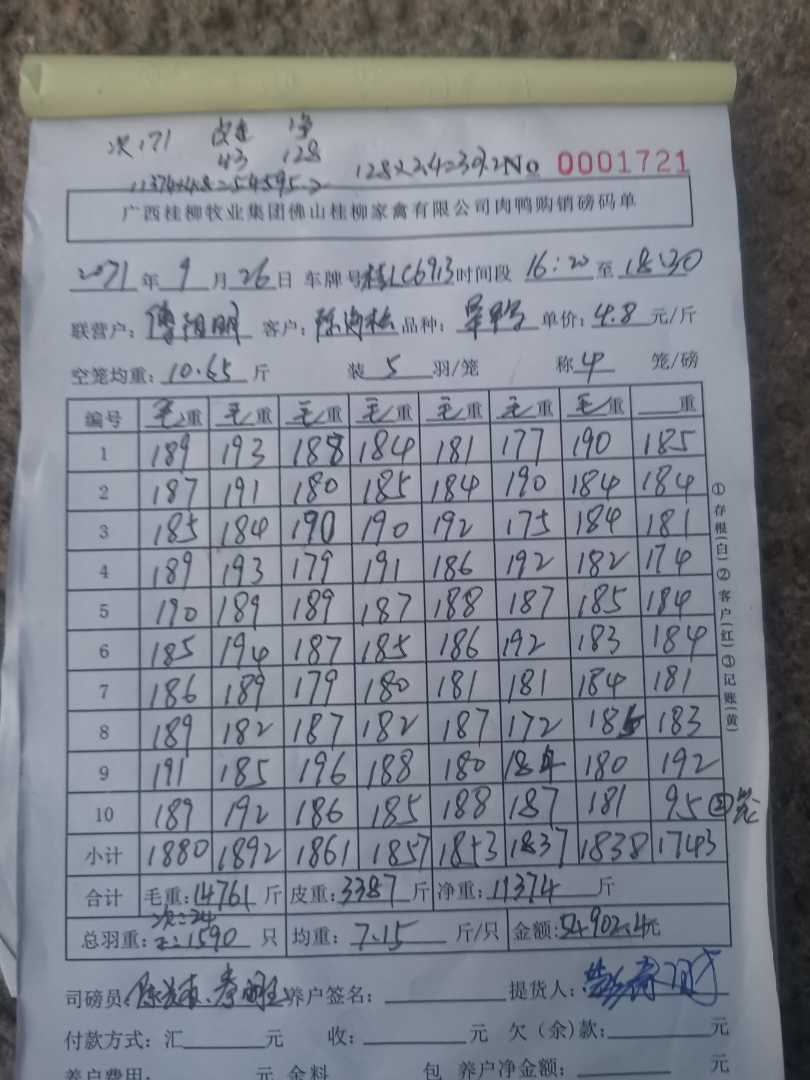 次:171 皮重 净
43 128 128×2.4=307.2 No 0001721
11374×4.8=54595.2
广西桂柳牧业集团佛山桂柳家禽有限公司肉鸭购销磅码单
2021年9月26日 车牌号桂LC6913时间段 16:20至18:30
联营户: 傅祖明 客户: 陈海松 品种: 单价: 4.8元/斤
空笼均重: 10.65斤 装5羽/笼 称4笼/磅
编号 毛重 毛重 毛重 毛重 毛重 毛重 毛重 重
1 189 193 188 184 181 177 190 185
2 187 191 180 185 184 190 184 184
3 185 184 190 190 192 175 184 181
4 189 193 179 191 186 192 182 174
5 190 189 189 187 188 187 185 184
6 185 194 187 185 186 192 183 184
7 186 189 179 180 181 181 184 181
8 189 182 187 182 187 172 185 183
9 191 185 196 188 180 184 180 192
10 189 192 186 185 188 187 181 95 ②笼
小计 1880 1892 1861 1857 1853 1837 1838 1743
合计 毛重:14761斤 皮重:3387斤 净重:11374斤
次:24
总羽重: 正:1590只 均重: 7.15斤/只 金额:54902.4元
司磅员: 养户签名: 提货人:
付款方式:汇 元 收: 元 欠(余)款: 元
养户费用: 元 余料 包 养户净金额: 元
①存根(白)②客户(红)③记账(黄)